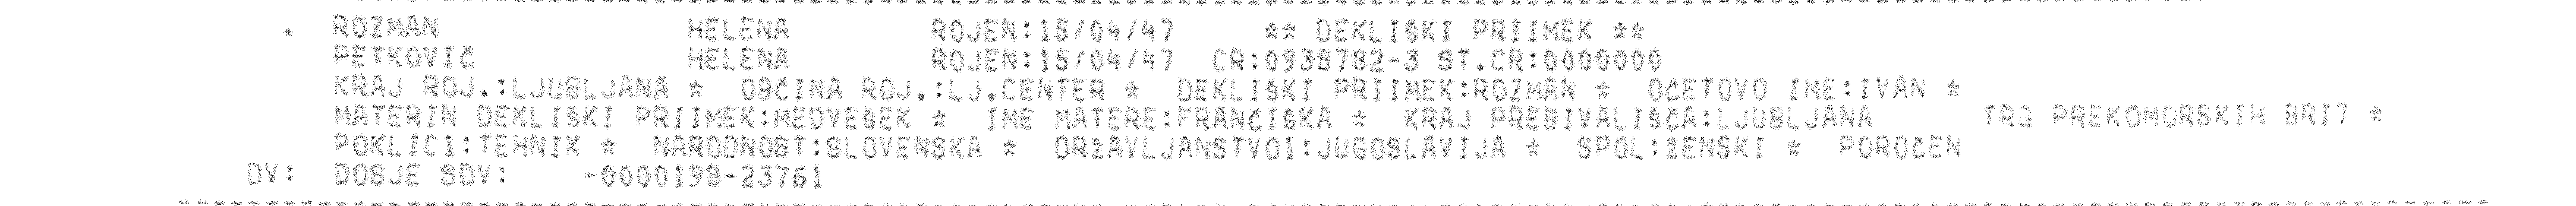 * ROZMAN HELENA ROJEN:15/04/47 ** DEKLIŠKI PRIIMEK **
PETKOVIČ HELENA ROJEN:15/04/47 CR:0938782-3 ST.CR:0000000
KRAJ ROJ.:LJUBLJANA * OBČINA ROJ.:LJ.CENTER * DEKLIŠKI PRIIMEK:ROZMAN * OČETOVO IME:IVAN *
MATERIN DEKLIŠKI PRIIMEK:MEDVEŠEK * IME MATERE:FRANČIŠKA * KRAJ PREBIVALIŠČA:LJUBLJANA TRG PREKOMORSKIH BRI7 *
POKLICI:TEHNIK * NARODNOST:SLOVENSKA * DRŽAVLJANSTVO1:JUGOSLAVIJA * SPOL:ŽENSKI * POROČEN
DV: DOSJE SDV: -0000198-23761